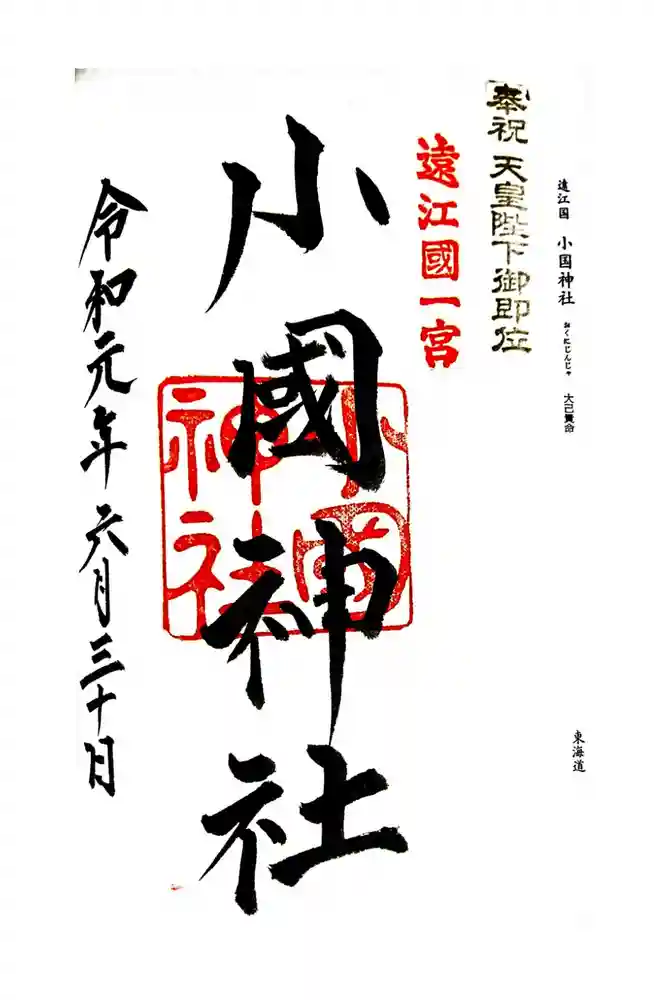 遠江国 小国神社 おくにじんじゃ 大己貴命
東海道
奉祝 天皇陛下御即位
遠江國一宮
小國神社
小國
神社
令和元年六月三十日